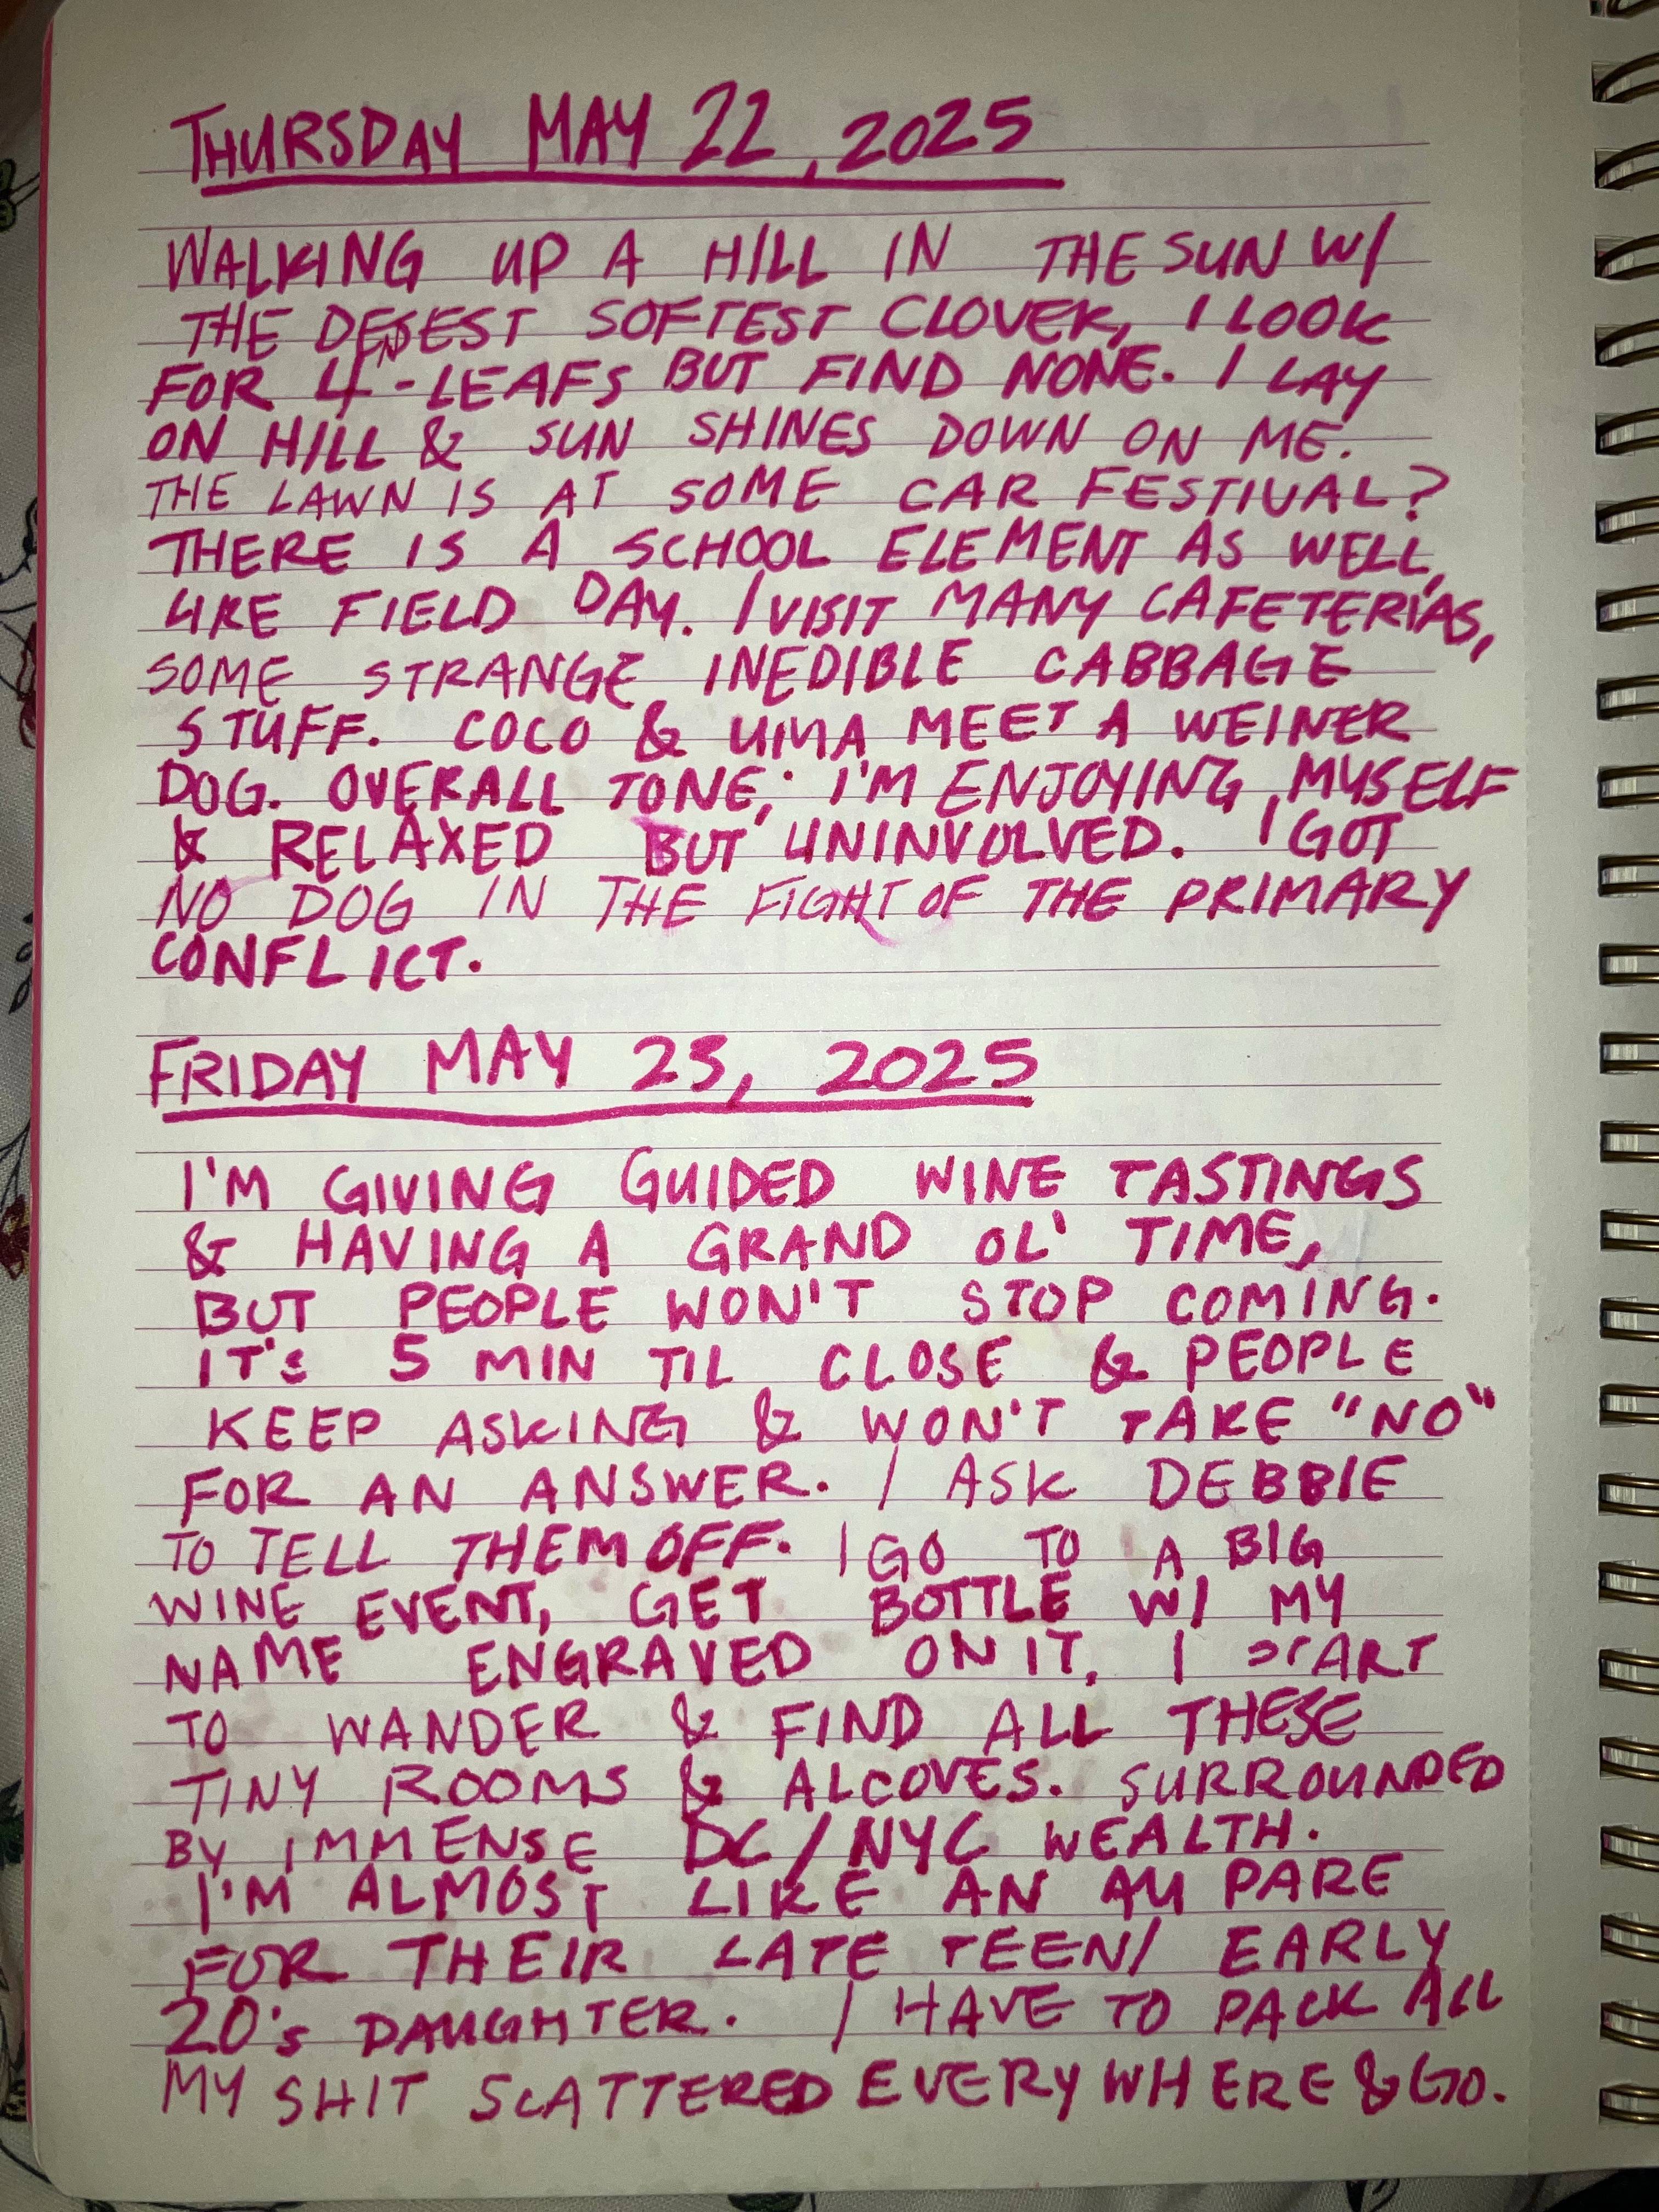 THURSDAY MAY 22, 2025
WALKING UP A HILL IN THE SUN W/
THE DENSEST SOFTEST CLOVER, I LOOK
FOR 4-LEAFS BUT FIND NONE. I LAY
ON HILL & SUN SHINES DOWN ON ME.
THE LAWN IS AT SOME CAR FESTIVAL?
THERE IS A SCHOOL ELEMENT AS WELL,
LIKE FIELD DAY. I VISIT MANY CAFETERIAS,
SOME STRANGE INEDIBLE CABBAGE
STUFF. COCO & UMA MEET A WEINER
DOG. OVERALL TONE; I'M ENJOYING MYSELF
& RELAXED BUT UNINVOLVED. I GOT
NO DOG IN THE FIGHT OF THE PRIMARY
CONFLICT.
FRIDAY MAY 23, 2025
I'M GIVING GUIDED WINE TASTINGS
& HAVING A GRAND OL' TIME,
BUT PEOPLE WON'T STOP COMING.
IT'S 5 MIN TIL CLOSE & PEOPLE
KEEP ASKING & WON'T TAKE "NO"
FOR AN ANSWER. I ASK DEBBIE
TO TELL THEM OFF. I GO TO A BIG
WINE EVENT, GET BOTTLE W/ MY
NAME ENGRAVED ON IT. I START
TO WANDER & FIND ALL THESE
TINY ROOMS & ALCOVES. SURROUNDED
BY IMMENSE DC/NYC WEALTH.
I'M ALMOST LIKE AN AU PARE
FOR THEIR LATE TEEN/ EARLY
20's DAUGHTER. I HAVE TO PACK ALL
MY SHIT SCATTERED EVERYWHERE & GO.